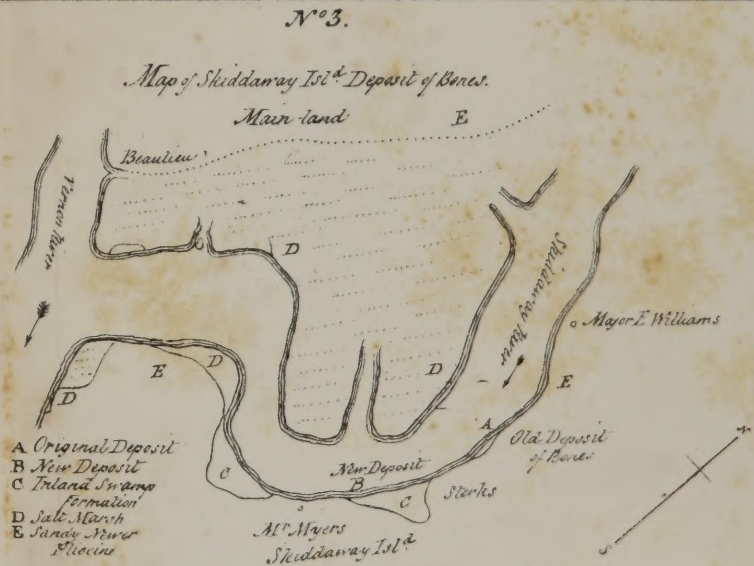 Nº 3.
Map of Skiddaway Islᵈ Deposit of Bones.
Main land
E
Beaulieu
Vernon River
D
Skiddaway River
Major E Williams
E
D
E
D
D
A
Old Deposit
of Bones
New Deposit
B
C
C
Sterks
Mʳ Myers
Skiddaway Islᵈ
A Original Deposit
B New Deposit
C Inland Swamp
Formation
D Salt Marsh
E Sandy Newer
Pliocine
N
S